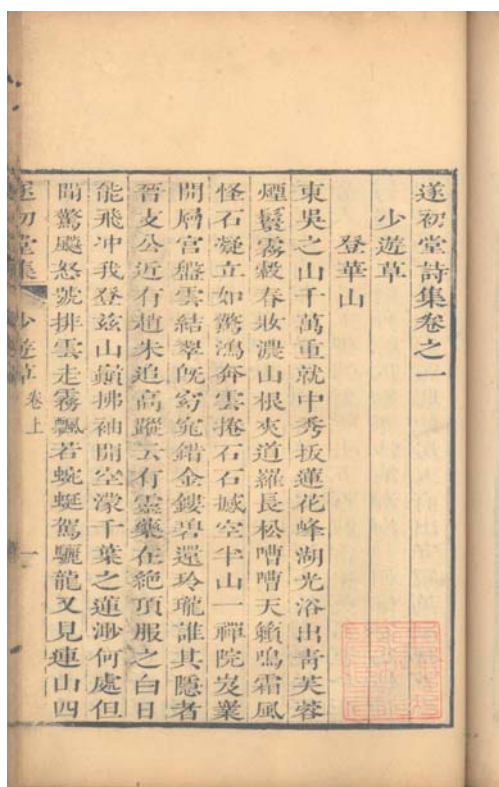 遂初堂詩集卷之一
少遊草
登華山
東吳之山千萬重就中秀拔蓮花峰湖光浴出青芙蓉
煙鬟霧縠春妝濃山根夾道羅長松嘈嘈天籟鳴霜風
怪石凝立如驚鴻奔雲捲石石撼空半山一禪院岌業
開層宮盤雲結翠旣窈窕錯金鏤碧還玲瓏誰其隱者
晉支公近有趙朱追高蹤云有靈藥在絕頂服之白日
能飛冲我登茲山巔拂袖開空濛千葉之蓮渺何處但
聞驚飈怒號排雲走霧飄若蜿蜒駕驪龍又見連山四
遂初堂集 少遊草 卷上 一